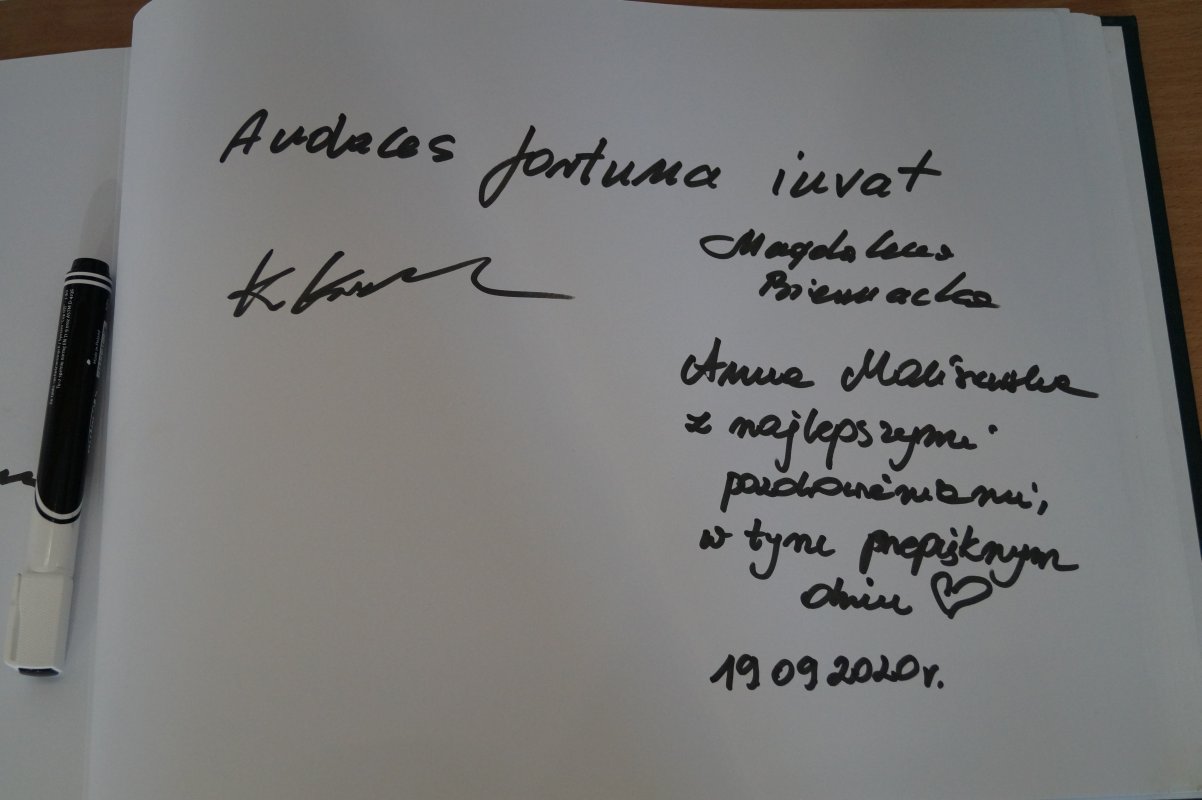 Audaces fortuna iuvat
Magdalena
Biernacka
Anna Maliszewska
z najlepszymi
pozdrowieniami,
w tym przepięknym
dniu
19 09 2020r.